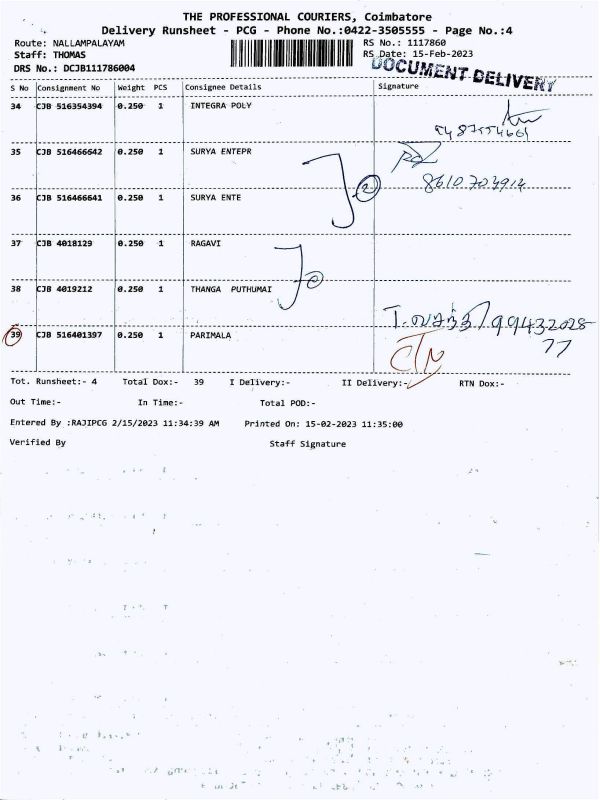 THE PROFESSIONAL COURIERS, Coimbatore
Delivery Runsheet - PCG - Phone No.:0422-3505555 - Page No.:4
Route: NALLAMPALAYAM RS No.: 1117860
Staff: THOMAS RS Date: 15-Feb-2023
DRS No.: DCJB111786004 DOCUMENT DELIVERY
S No Consignment No Weight PCS Consignee Details Signature
34 CJB 516354394 0.250 1 INTEGRA POLY
35 CJB 516466642 0.250 1 SURYA ENTEPR
8610703914
36 CJB 516466641 0.250 1 SURYA ENTE
37 CJB 4018129 0.250 1 RAGAVI
38 CJB 4019212 0.250 1 THANGA PUTHUMAI
39 CJB 516401397 0.250 1 PARIMALA
Tot. Runsheet:- 4 Total Dox:- 39 I Delivery:- II Delivery:- RTN Dox:-
Out Time:- In Time:- Total POD:-
Entered By :RAJIPCG 2/15/2023 11:34:39 AM Printed On: 15-02-2023 11:35:00
Verified By Staff Signature